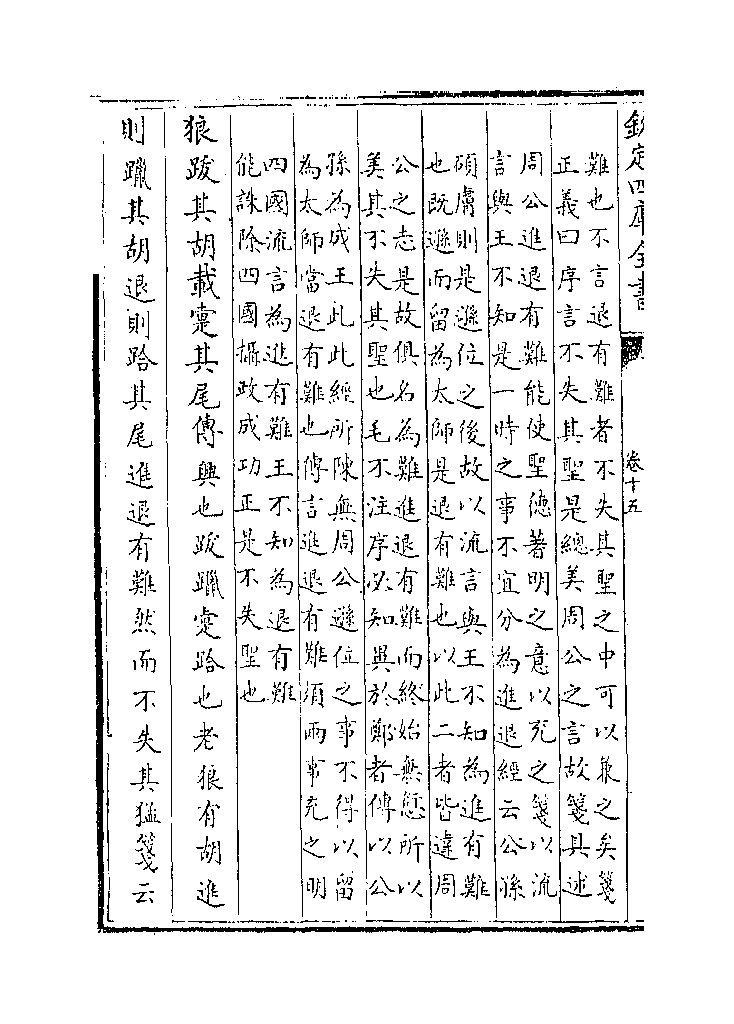 欽定四庫全書
卷十五
難也不言退有難者不失其聖之中可以兼之矣箋
正義曰序言不失其聖是總美周公之言故箋具述
周公進退有難能使聖德著明之意以充之箋以流
言與王不知是一時之事不宜分為進退經云公孫
碩膚則是遜位之後故以流言與王不知為進有難
也既遜而留為太師是退有難也以此二者皆違周
公之志是故俱名為難進退有難而終始無愆所以
美其不失其聖也毛不注序必知異於鄭者傳以公
孫為成王此此經所陳無周公遜位之事不得以留
為太師當退有難也傳言進退有難須兩事充之明
四國流言為進有難王不知為退有難
能誅除四國攝政成功正是不失聖也
狼跋其胡載疐其尾傳興也跋躐疐跲也老狼有胡進
則躐其胡退則跲其尾進退有難然而不失其猛箋云